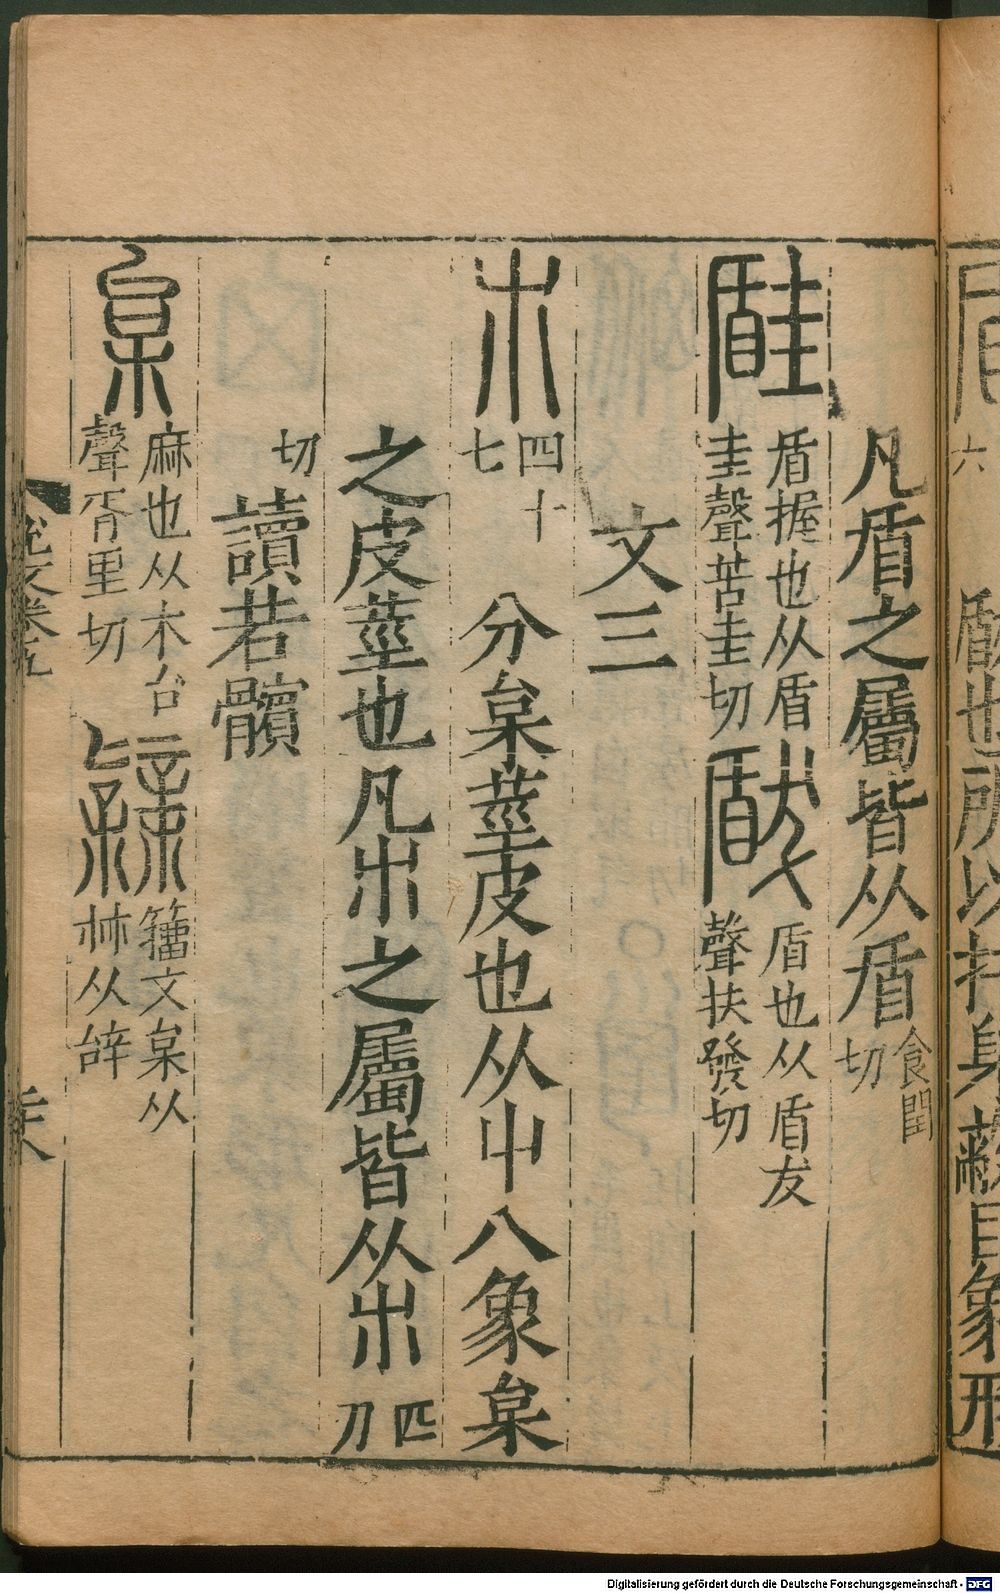 六
瞂也所以扞身蔽目象形
凡盾之屬皆从盾食閏切
𥎃盾握也从盾圭聲苦圭切瞂盾也从盾犮聲扶發切
文三
𣎳四十七分枲莖皮也从屮八象枲
之皮莖也凡𣎳之屬皆从𣎳匹刃
切讀若髕
枲麻也从木台聲胥里切𣏕籀文枲从𣏟从辝
說文卷五
Digitalisierung gefördert durch die Deutsche Forschungsgemeinschaft - DFG